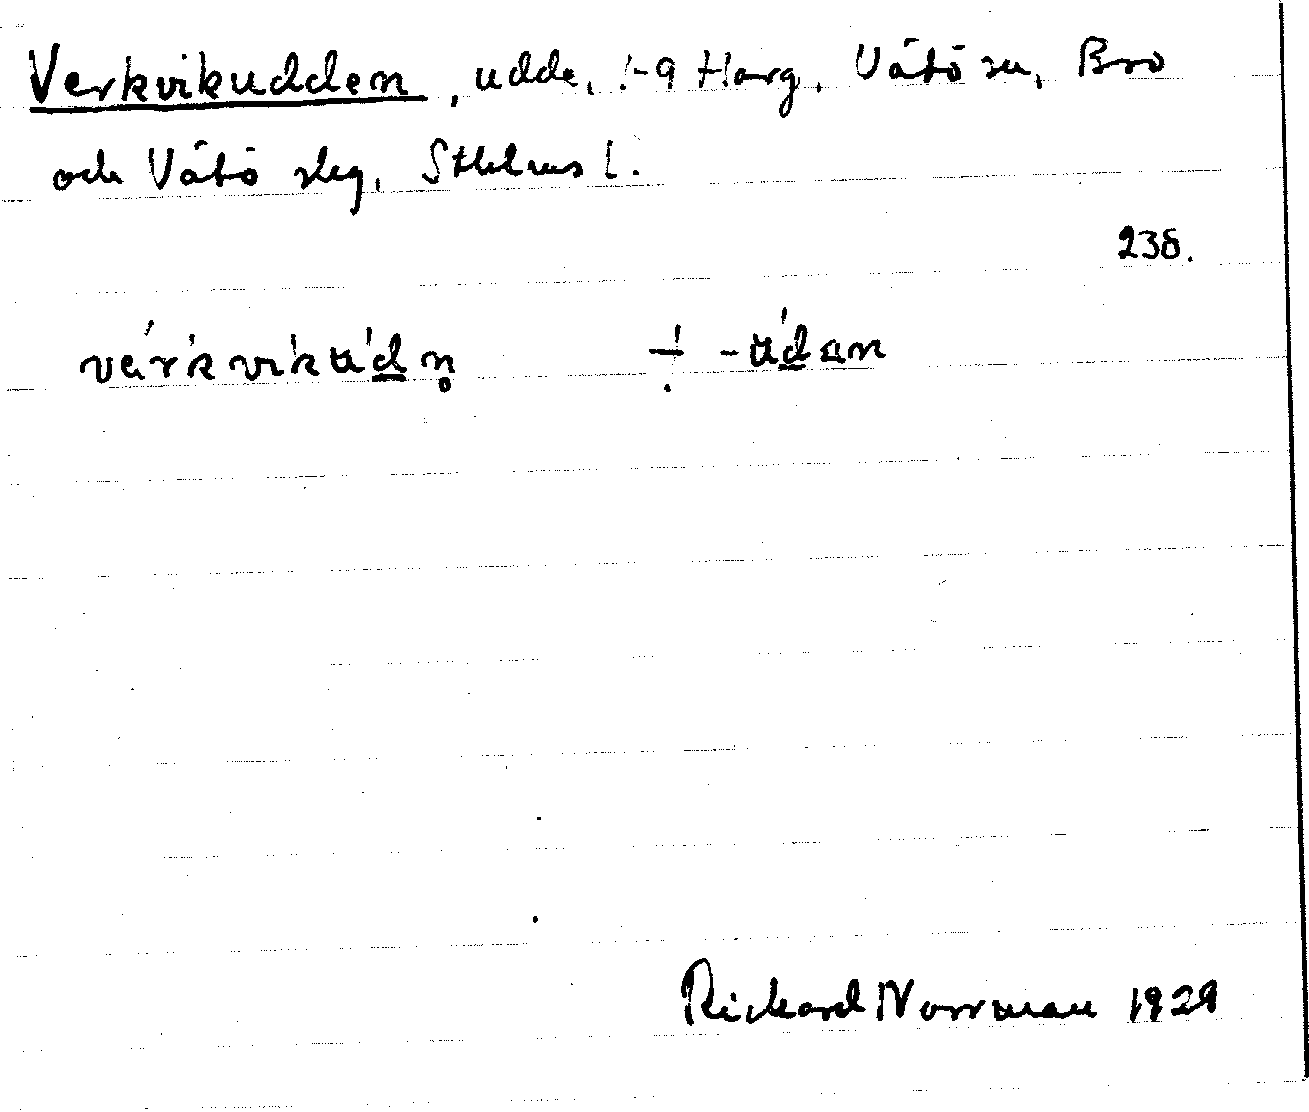 Verkvikudden, udde, 1-9 Harg, Vätö sn, Bro
och Vätö slg, Sthlms l.
238.
værkvikud̲n̥ ÷ -ud̲an
Rickard Norrman 1929